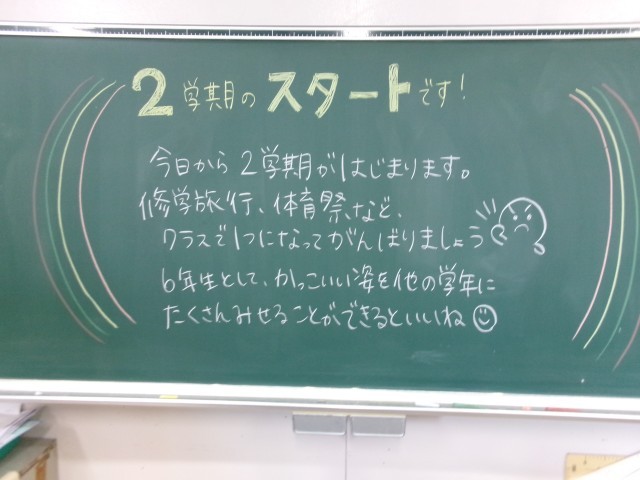 2学期のスタートです!
今日から2学期がはじまります。
修学旅行、体育祭、など、
クラスで1つになってがんばりましょう
6年生として、かっこいい姿を他の学年に
たくさんみせることができるといいね